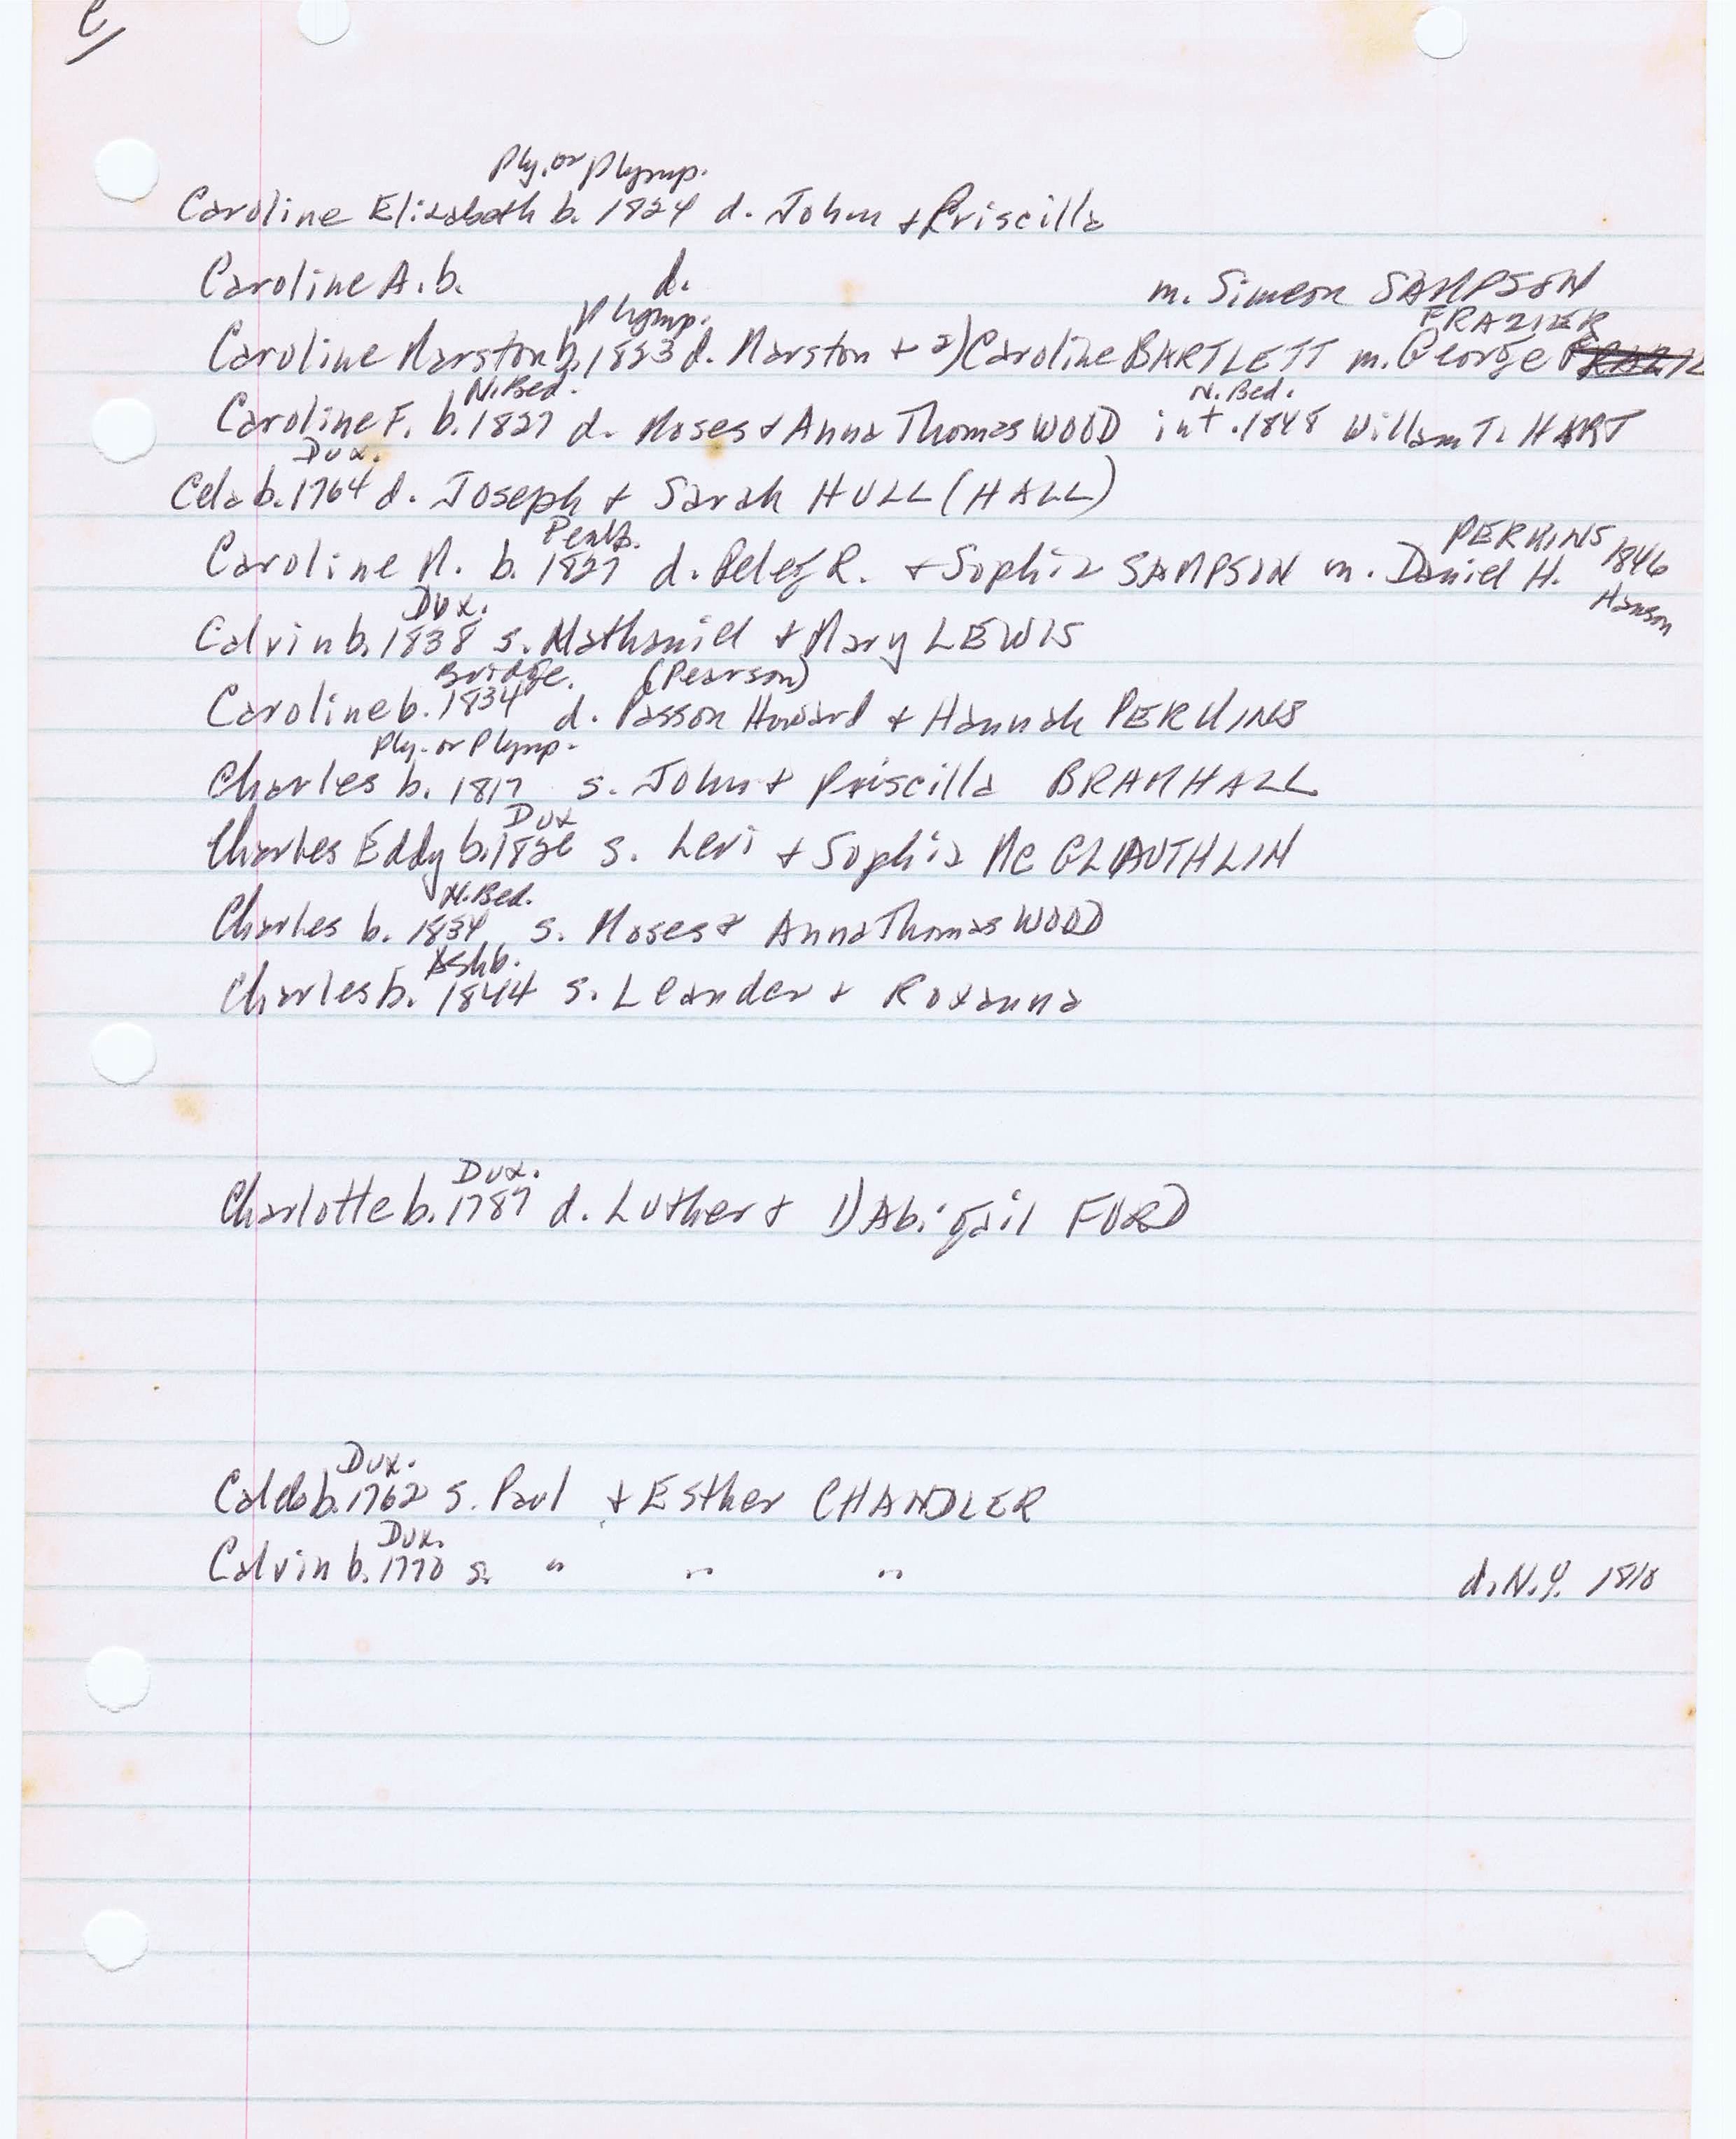 C/
Ply. or Plymp.
Caroline Elizabeth b. 1824 d. John + Priscilla
Caroline A. b. d. m. Simeon SAMPSON
Plymp. FRAZIER
Caroline Marston b. 1823 d. Marston + 2) Caroline BARTLETT m. George
N. Bed. N. Bed.
Caroline F. b. 1827 d. Moses + Anna Thomas WOOD int. 1848 William T. HART
Dux.
Cela b. 1764 d. Joseph + Sarah HULL (HALL)
Pemb. PERKINS 1846
Caroline M. b. 1827 d. Peleg R. + Sophia SAMPSON m. Daniel H. Hanson
Dux.
Calvin b. 1838 s. Nathaniel + Mary LEWIS
Bridge. (Pearson)
Caroline b. 1834 d. Passon Howard + Hannah PERKINS
Ply. or Plymp.
Charles b. 1817 s. John + Priscilla BRAMHALL
Dux
Charles Eddy b. s. Levi + Sophia Mc GLAUTHLIN
N. Bed.
Charles b. 1834 s. Moses + Anna Thomas WOOD
Ashb.
Charles b. 1844 s. Leander + Roxanna
Dux.
Charlotte b. 1787 d. Luther + 1) Abigail FORD
Dux.
Caleb b. 1762 s. Paul + Esther CHANDLER
Dux.
Calvin b. 1770 s. " " " d. N.Y. 1810